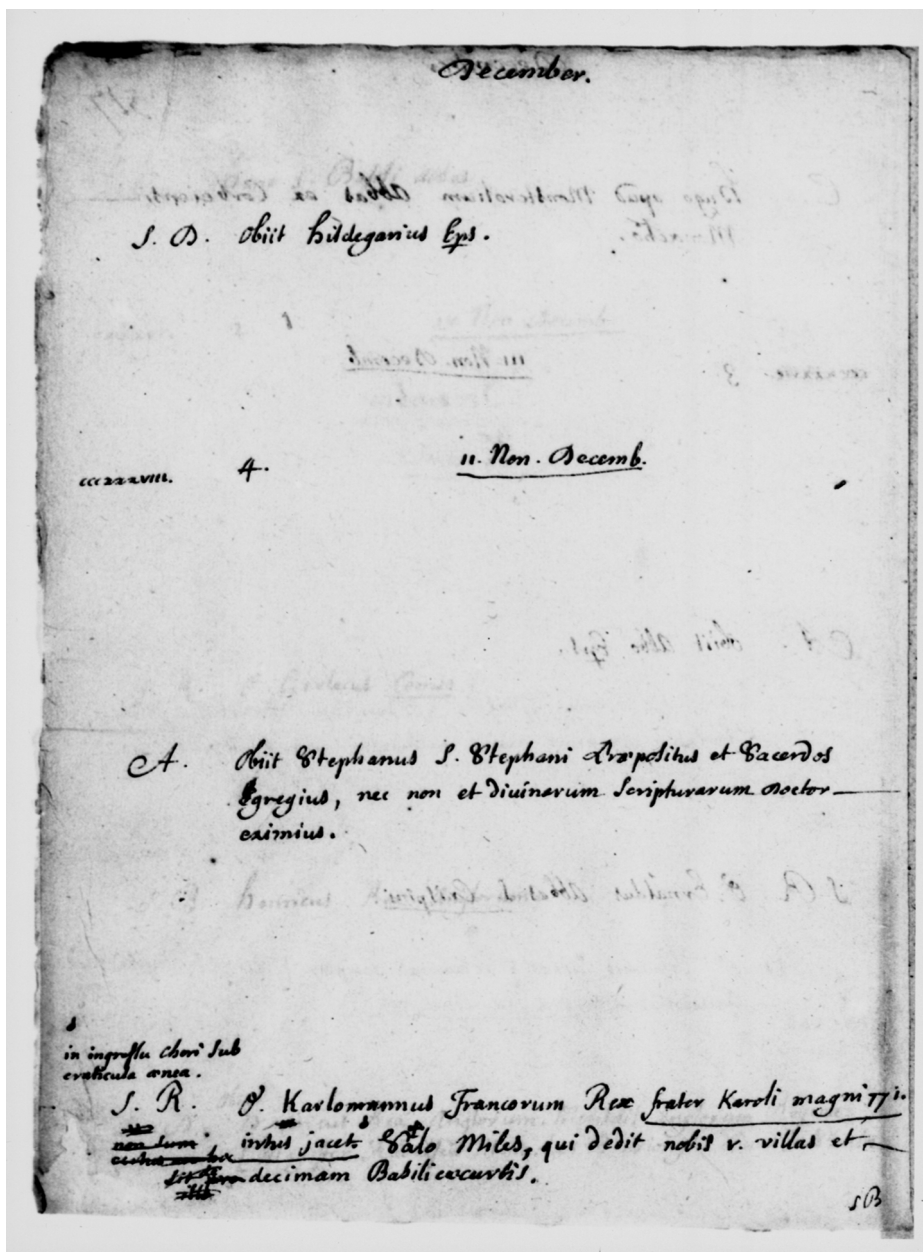 December.
S. D. Obiit Hildegarius Eps.
cccxxxviii. 4. ii. Non. Decemb.
A. Obiit Stephanus S. Stephani Præpositus et Sacerdos
Egregius, nec non et divinarum Scripturarum Doctor
eximius.
in ingressu chori sub
craticula ænea.
S. R. O. Karlomannus Francorum Rex frater Karoli magni 771.
intus jacet et Walo Miles, qui dedit nobis v. villas et
decimam Basilicæcurtis.
SB